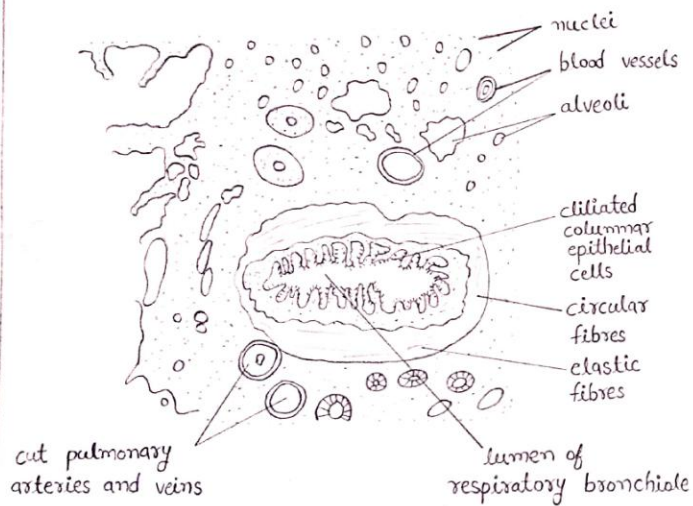 nuclei
blood vessels
alveoli
cliliated
columnar
epithelial
cells
circular
fibres
elastic
fibres
cut pulmonary
arteries and veins
lumen of
respiratory bronchiole